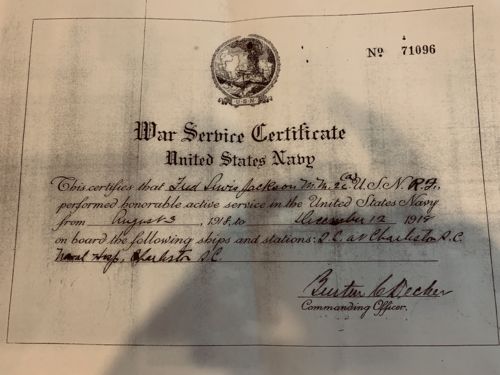 Nº 71096
U.S.N.
War Service Certificate
United States Navy
This certifies that Fred Lewis Jackson M.M. 2c (a) U.S.N. R.F.,
performed honorable active service in the United States Navy
from August 3, 1918, to December 12 1918
on board the following ships and stations: at Charleston S.C.
Naval Hosp, Charleston S.C.
Burton C Decker
Commanding Officer.